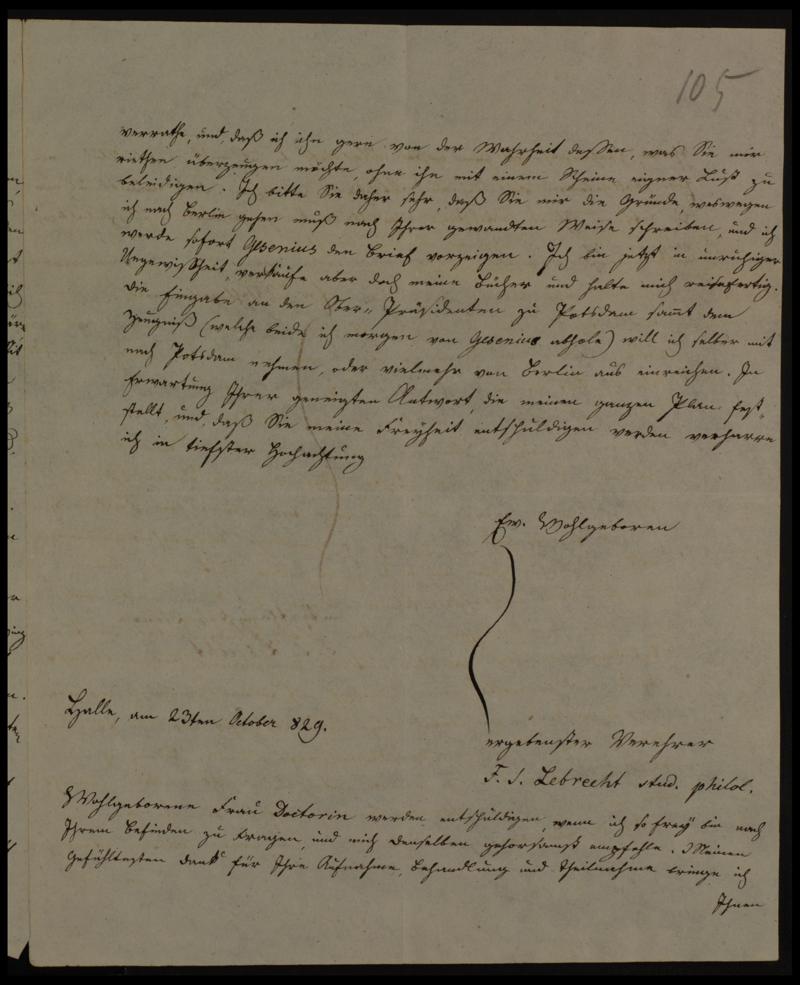 105
verrathe, und, daß ich ihn gern von der Wahrheit dessen, was Sie mir
riethen überzeugen möchte, ohne ihn mit einem Scheine eigner Lust zu
beleidigen. Ich bitte Sie daher sehr, daß Sie mir die Gründe, weswegen
ich nach Berlin gehen muß nach Ihrer gewandten Weise schreiben, und ich
werde sofort Gesenius den Brief vorzeigen. Ich bin jetzt in unruhiger
Ungewißheit, verkäufe aber doch meine Bücher und halte mich reisefertig.
Die Eingabe an den Ober-Präsidenten zu Potsdam sammt dem
Zeugniß (welche beide ich morgen von Gesenius abhole) will ich selber mit
nach Potsdam nehmen, oder vielmehr von Berlin aus einreichen. In
Erwartung Ihrer geneigten Antwort, die meinen ganzen Plan fest-
stellt, und, daß Sie meine Freyheit entschuldigen werden verharre
ich in tiefster Hochachtung
Ew. Wohlgeboren
Halle, am 23ten October 829.
ergebenster Verehrer
F. S. Lebrecht stud. philol.
Wohlgeborene Frau Doctorin werden entschuldigen, wenn ich so frey bin nach
Ihrem Befinden zu fragen, und mich denselben gehorsamst empfehle. Meinen
gefühltesten Dank für Ihre Aufnahme, Behandlung und Theilnahme bringe ich
Ihnen